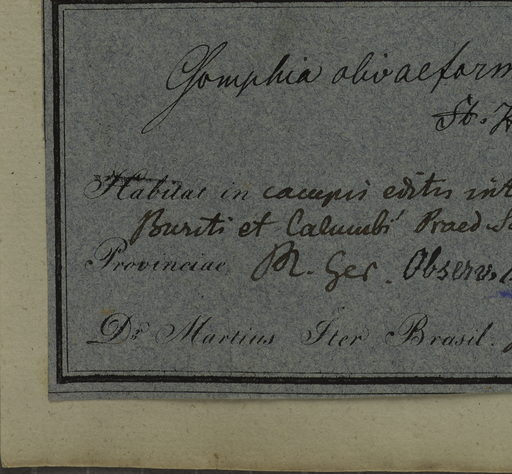 Gomphia olivaeform
St. H
Habitat in campis editis int
Buriti et Calumbi Praed. S
Provinciae M. Ger. Observ.
Dr Martius Iter Brasil.